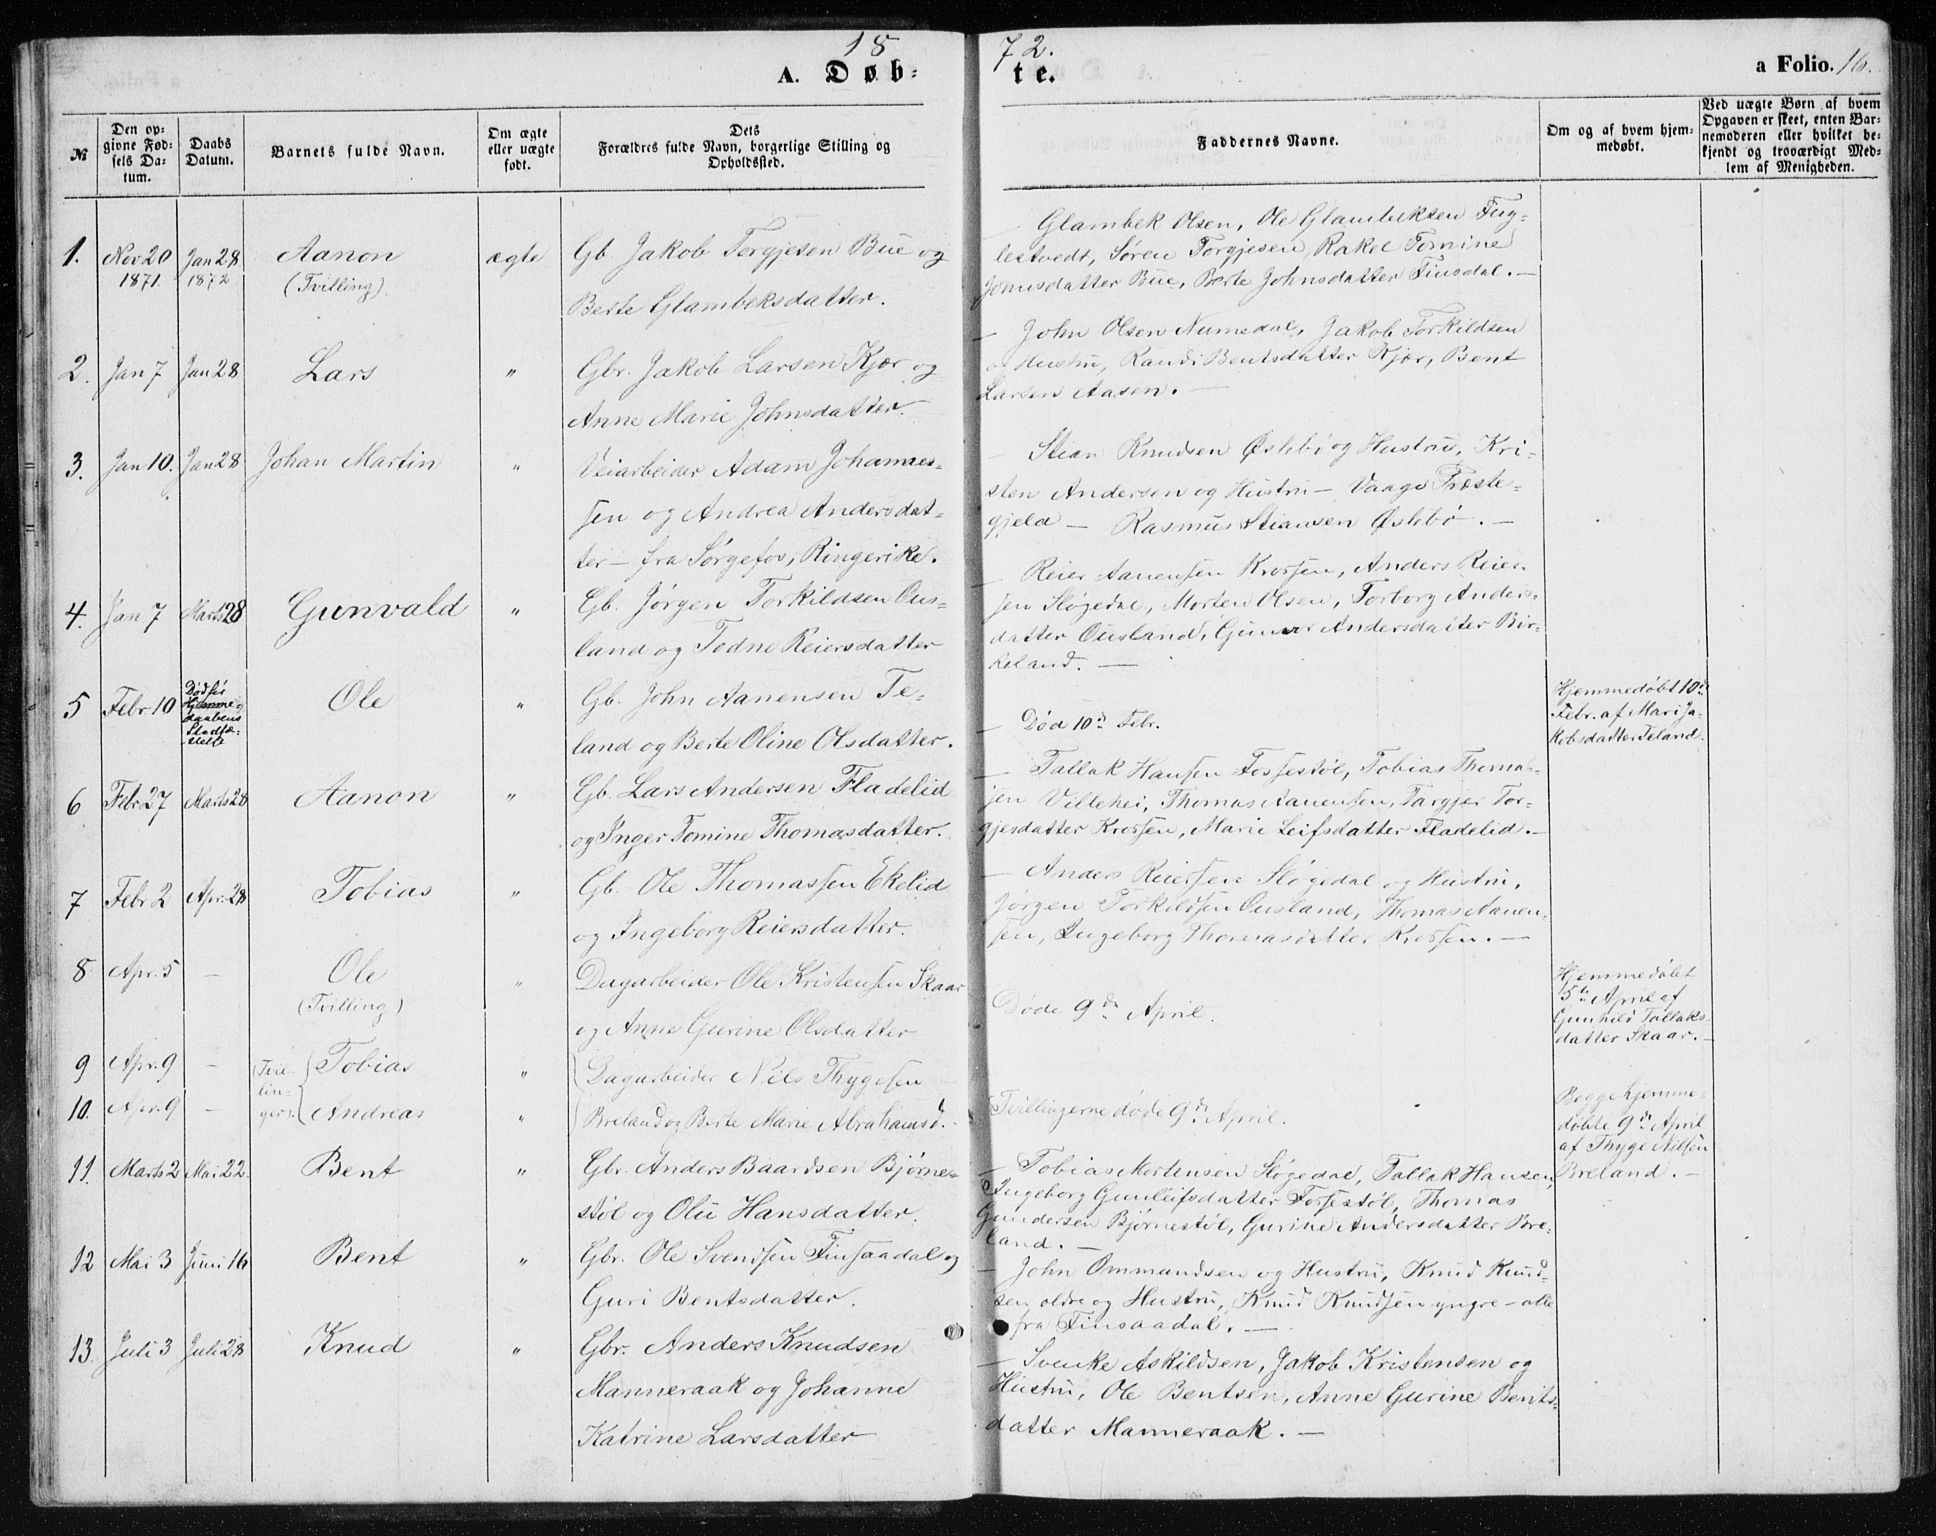 1872.
A. Døb-
te.
a Folio. 16.
№
Den op-
givne Fød-
sels Da-
tum.
Daabs
Datum.
Barnets fulde Navn.
Om ægte
eller uægte
født.
Dets
Forældres fulde Navn, borgerlige Stilling og
Opholdssted.
Faddernes Navne.
Om og af hvem hjem-
medøbt.
Ved uægte Børn af hvem
Opgaven er skeet, enten Bar-
nemoderen eller hvilket be-
kjendt og troværdigt Med-
lem af Menigheden.
1. Nov 20 Jan 28 Aanon ægte Gb Jakob Torgjesen Bue og
1871. 1872 (Tvilling)
Berte Glambeksdatter.
— Glambek Olsen, Ole Glambeksen Fug-
lestvedt, Søren Torgjesen, Rakel Tomine
Jonusdatter Bue, Berte Johnsdatter Finsdal. —
2. Jan 7 Jan 28 Lars " Gbr. Jakob Larsen Kjær og
Anne Marie Johnsdatter.
— John Olsen Numedal, Jakob Torkildsen
og Hustru, Randi Bentsdatter Kjær, Bent
Larsen Aasen. —
3. Jan 10. Jan 28 Johan Martin " Veiarbeider Adam Johannes-
sen og Andrea Andersdat-
ter — fra Sørgefos, Ringerike.
— Stian Knudsen Øslebø og Hustru, Kri-
sten Andersen og Hustru — Vaage Præste-
gjeld — Rasmus Stiansen Øslebø. —
4. Jan 7 Marts 28 Gunvald " Gb. Jørgen Torkildsen Ous-
land og Todne Reiersdatter
— Reier Aanensen Krossen, Anders Reier-
sen Sløgedal, Morten Olsen, Torborg Anders-
datter Ousland, Gunvor Andersdatter Bir-
keland. —
5 Febr 10 Død før
Hjemme-
daabens
Stadfæ-
stelse
Ole " Gb. John Aanensen Te-
land og Berte Oline Olsdatter.
— Død 10de Febr.
Hjemmedøbt 10de
Febr. af Mari Ja-
kobsdatter Teland.
6 Febr 27 Marts 28 Aanon " Gb. Lars Andersen Fladelid
og Inger Tomine Thomasdatter.
— Tallak Hansen Fossestøl, Tobias Thomas-
sen Villehei, Thomas Aanensen, Targjer Tor-
gjesdatter Krossen, Marie Leifsdatter Fladelid. —
7 Febr 2 Apr. 28 Tobias " Gb. Ole Thomassen Ekelid
og Ingeborg Reiersdatter.
— Anders Reiersen Sløgedal og Hustru,
Jørgen Torkildsen Ousland, Thomas Aanen-
sen, Ingeborg Thomasdatter Krossen. —
8 Apr. 5 — Ole " Dagarbeider Ole Kristensen Skaar
(Tvilling)
og Anne Gurine Olsdatter
Døde 9de April.
Hjemmedøbt
5te April af
Gunhild Tallaks-
datter Skaar. —
9 Apr. 9 — (Tvil-
lin-
ger)
Tobias " Dagarbeider Nils Thygesen
10. Apr. 9 — Andreas " Breland og Berte Marie Abrahamsd.
Tvillingerne døde 9de April.
Begge hjemme-
døbte 9de April
af Thyge Nilsen
Breland. —
11. Marts 2 Mai 22. Bent " Gbr. Anders Baardsen Bjørne-
støl og Olu Hansdatter.
— Tobias Mortensen Sløgedal, Tallak Hansen,
Ingeborg Gunleifsdatter Fossestøl, Thomas
Gundersen Bjørnestøl, Gurine Andersdatter Bre-
land. —
12 Mai 3 Juni 16 Bent " Gbr. Ole Svendsen Finsaadal og
Guri Bentsdatter.
— John Ommundsen og Hustru, Knud Knud-
sen ældre og Hustru, Knud Knudsen yngre — alle
fra Finsaadal. —
13. Juli 3 Juli 28 Knud " Gbr. Anders Knudsen
Manneraak og Johanne
Katrine Larsdatter
— Svenke Askildsen, Jakob Kristensen og
Hustru, Ole Bentsen, Anne Gurine Bents-
datter Manneraak. —